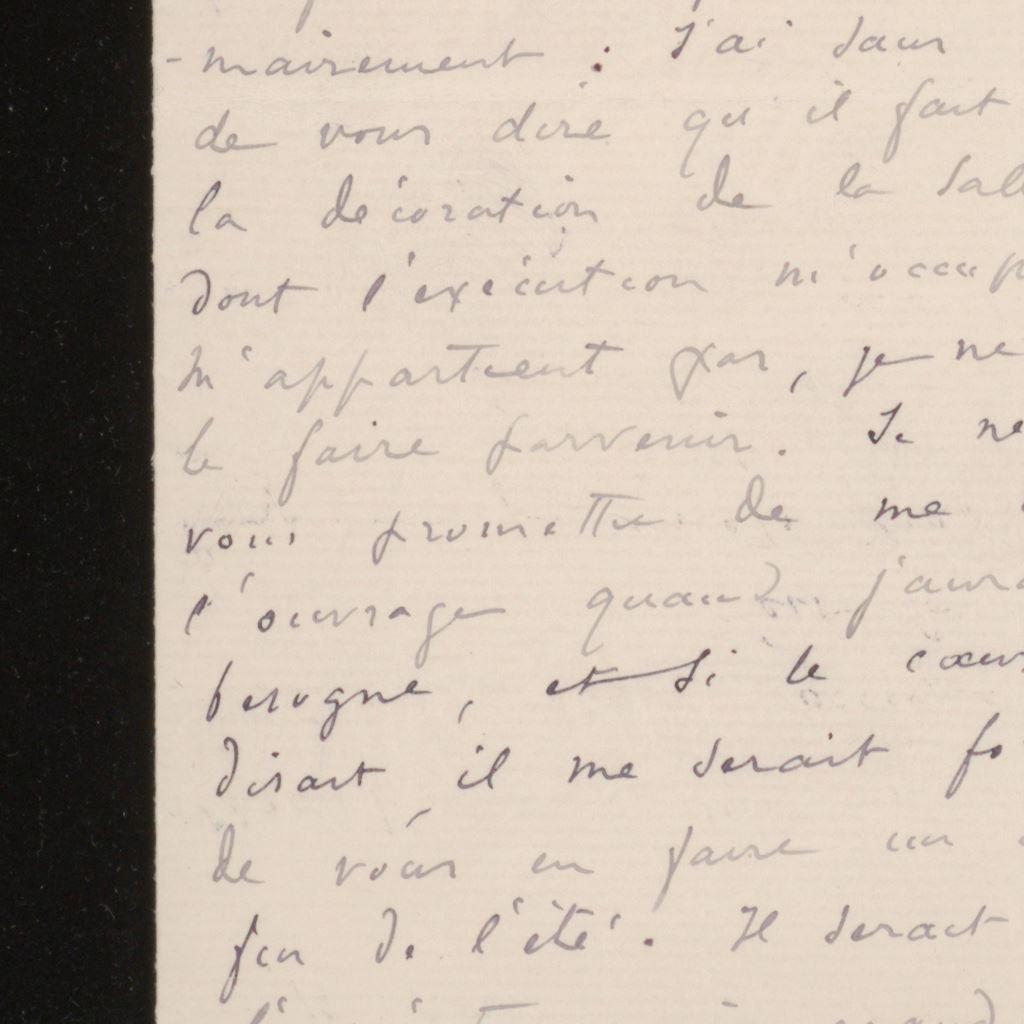 -mairement : J'ai dans
de vous dire qu'il fait
la décoration de la Sall
dont l'exécution m'occup
m'appartient pas, je ne
le faire parvenir. Je ne
vous promettre de me
l'ouvrage quand j'aura
besogne, et si le cœur
disait il me serait fo
de vous en faire un
fin de l'été. Il serait